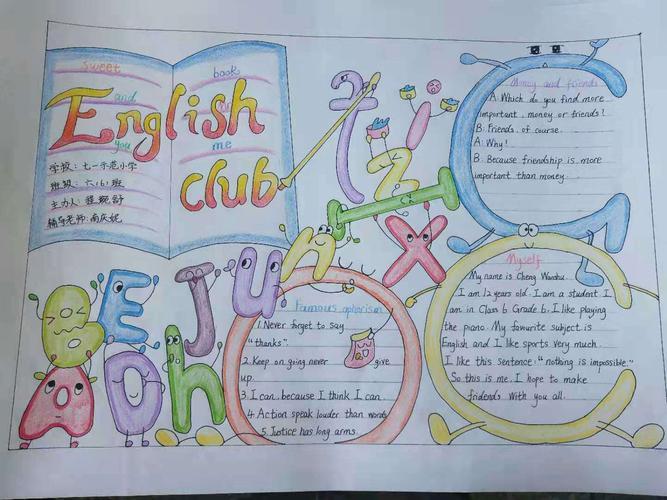 sweet
book
and
English
you
me
club
学校:七一示范小学
班级:六(6)班
主办人:程婉舒
辅导老师:南庆妮
t
i
z
I
n
x
B
E
J
u
A
O
h
Money and friends
A: Which do you find more
important, money or friends?
B: Friends, of course.
A: Why?
B: Because friendship is more
important than money.
Famous aphorism
1. Never forget to say
"thanks".
2. Keep on going never give
up.
3. I can, because I think I can.
4. Action speak louder than words
5. Justice has long arms.
Myself
My name is Cheng Wanshu.
I am 12 years old. I am a student I
am in Class 6 Grade 6. I like playing
the piano. My favourite subject is
English and I like sports very much.
I like this sentence: "nothing is impossible."
So this is me. I hope to make
friends with you all.